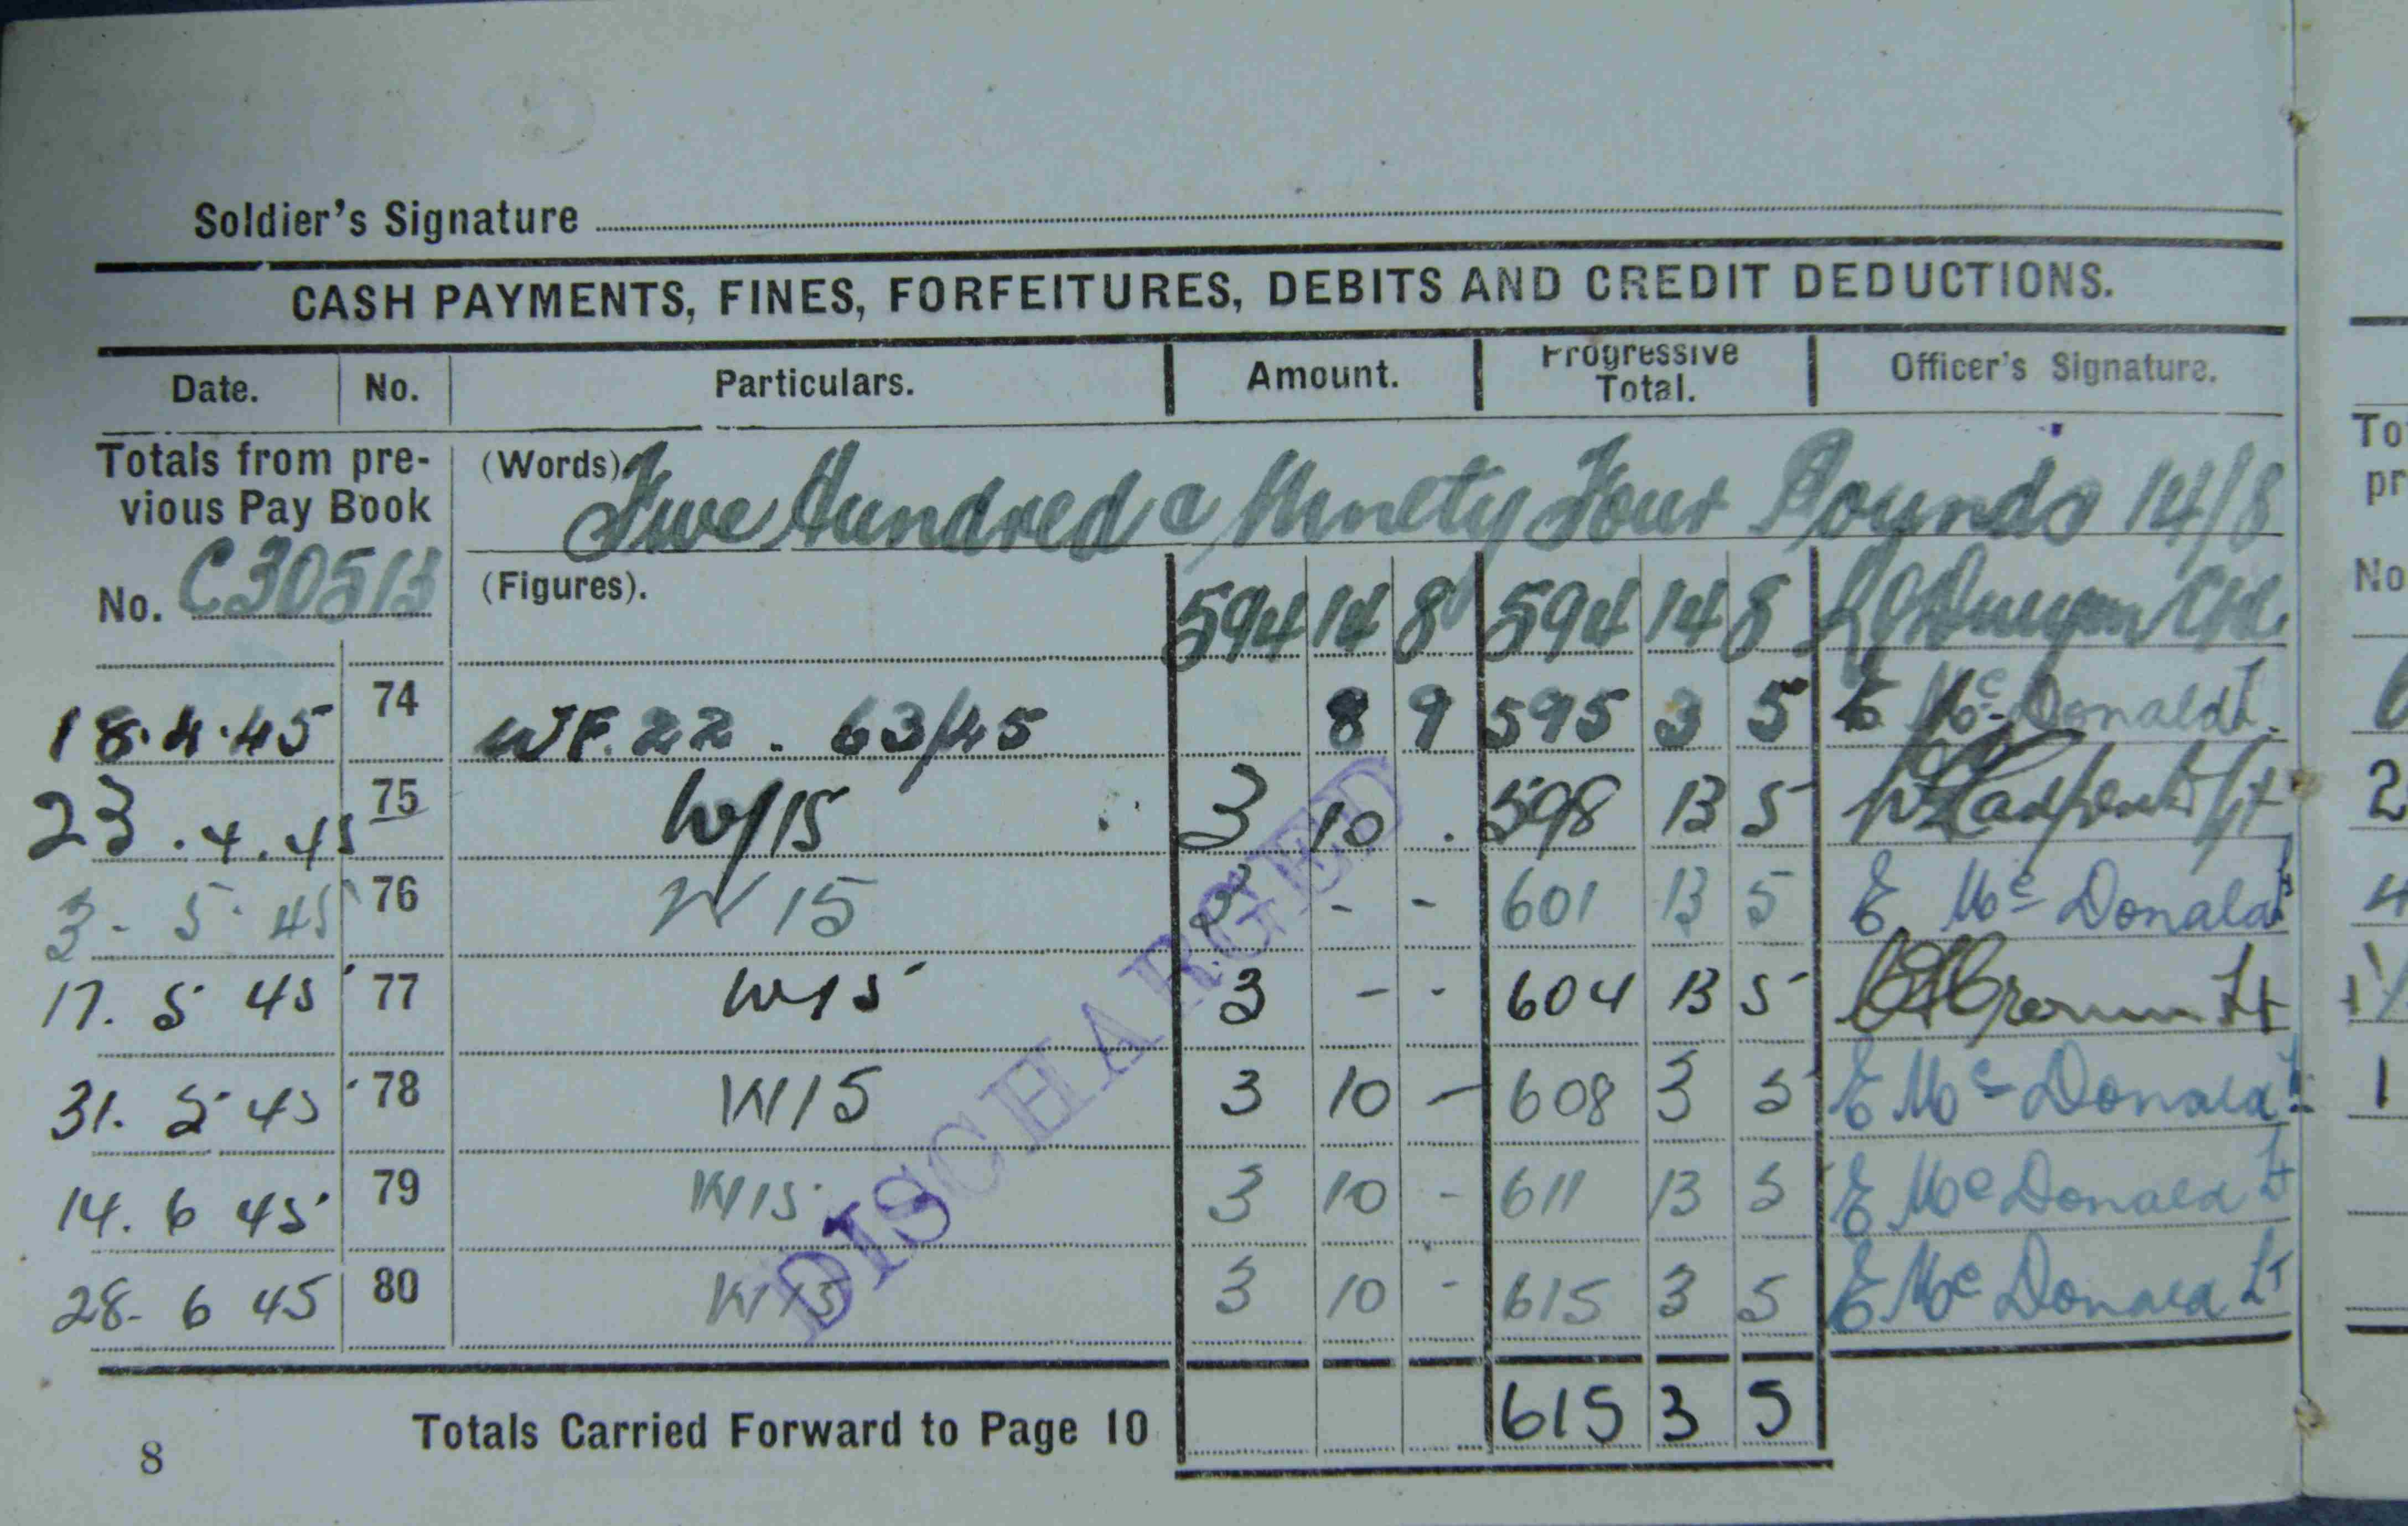 Soldier's Signature
CASH PAYMENTS, FINES, FORFEITURES, DEBITS AND CREDIT DEDUCTIONS.
Date. No. Particulars. Amount. Progressive Total. Officer's Signature.
Totals from pre-
vious Pay Book
(Words) Five Hundred & Ninety Four Pounds 14/8
No. C30513 (Figures). 594 14 8 594 14 8
18.4.45 74 WF.22. 63/45 8 9 595 3 5 E McDonald Lt.
23.4.45 75 W/15 3 10 . 598 13 5 Lt
3-5-45 76 W 15 3 - - 601 13 5 E McDonald Lt
17.5 45 77 W15 3 - - 604 13 5 Lt
31.5 45 78 W15 3 10 - 608 3 5 E McDonald Lt
14.6 45 79 W15 3 10 - 611 13 5 E McDonald Lt
28-6 45 80 W15 3 10 - 615 3 5 E McDonald Lt
DISCHARGED
Totals Carried Forward to Page 10 615 3 5
8
To
pr
No
2
4
1